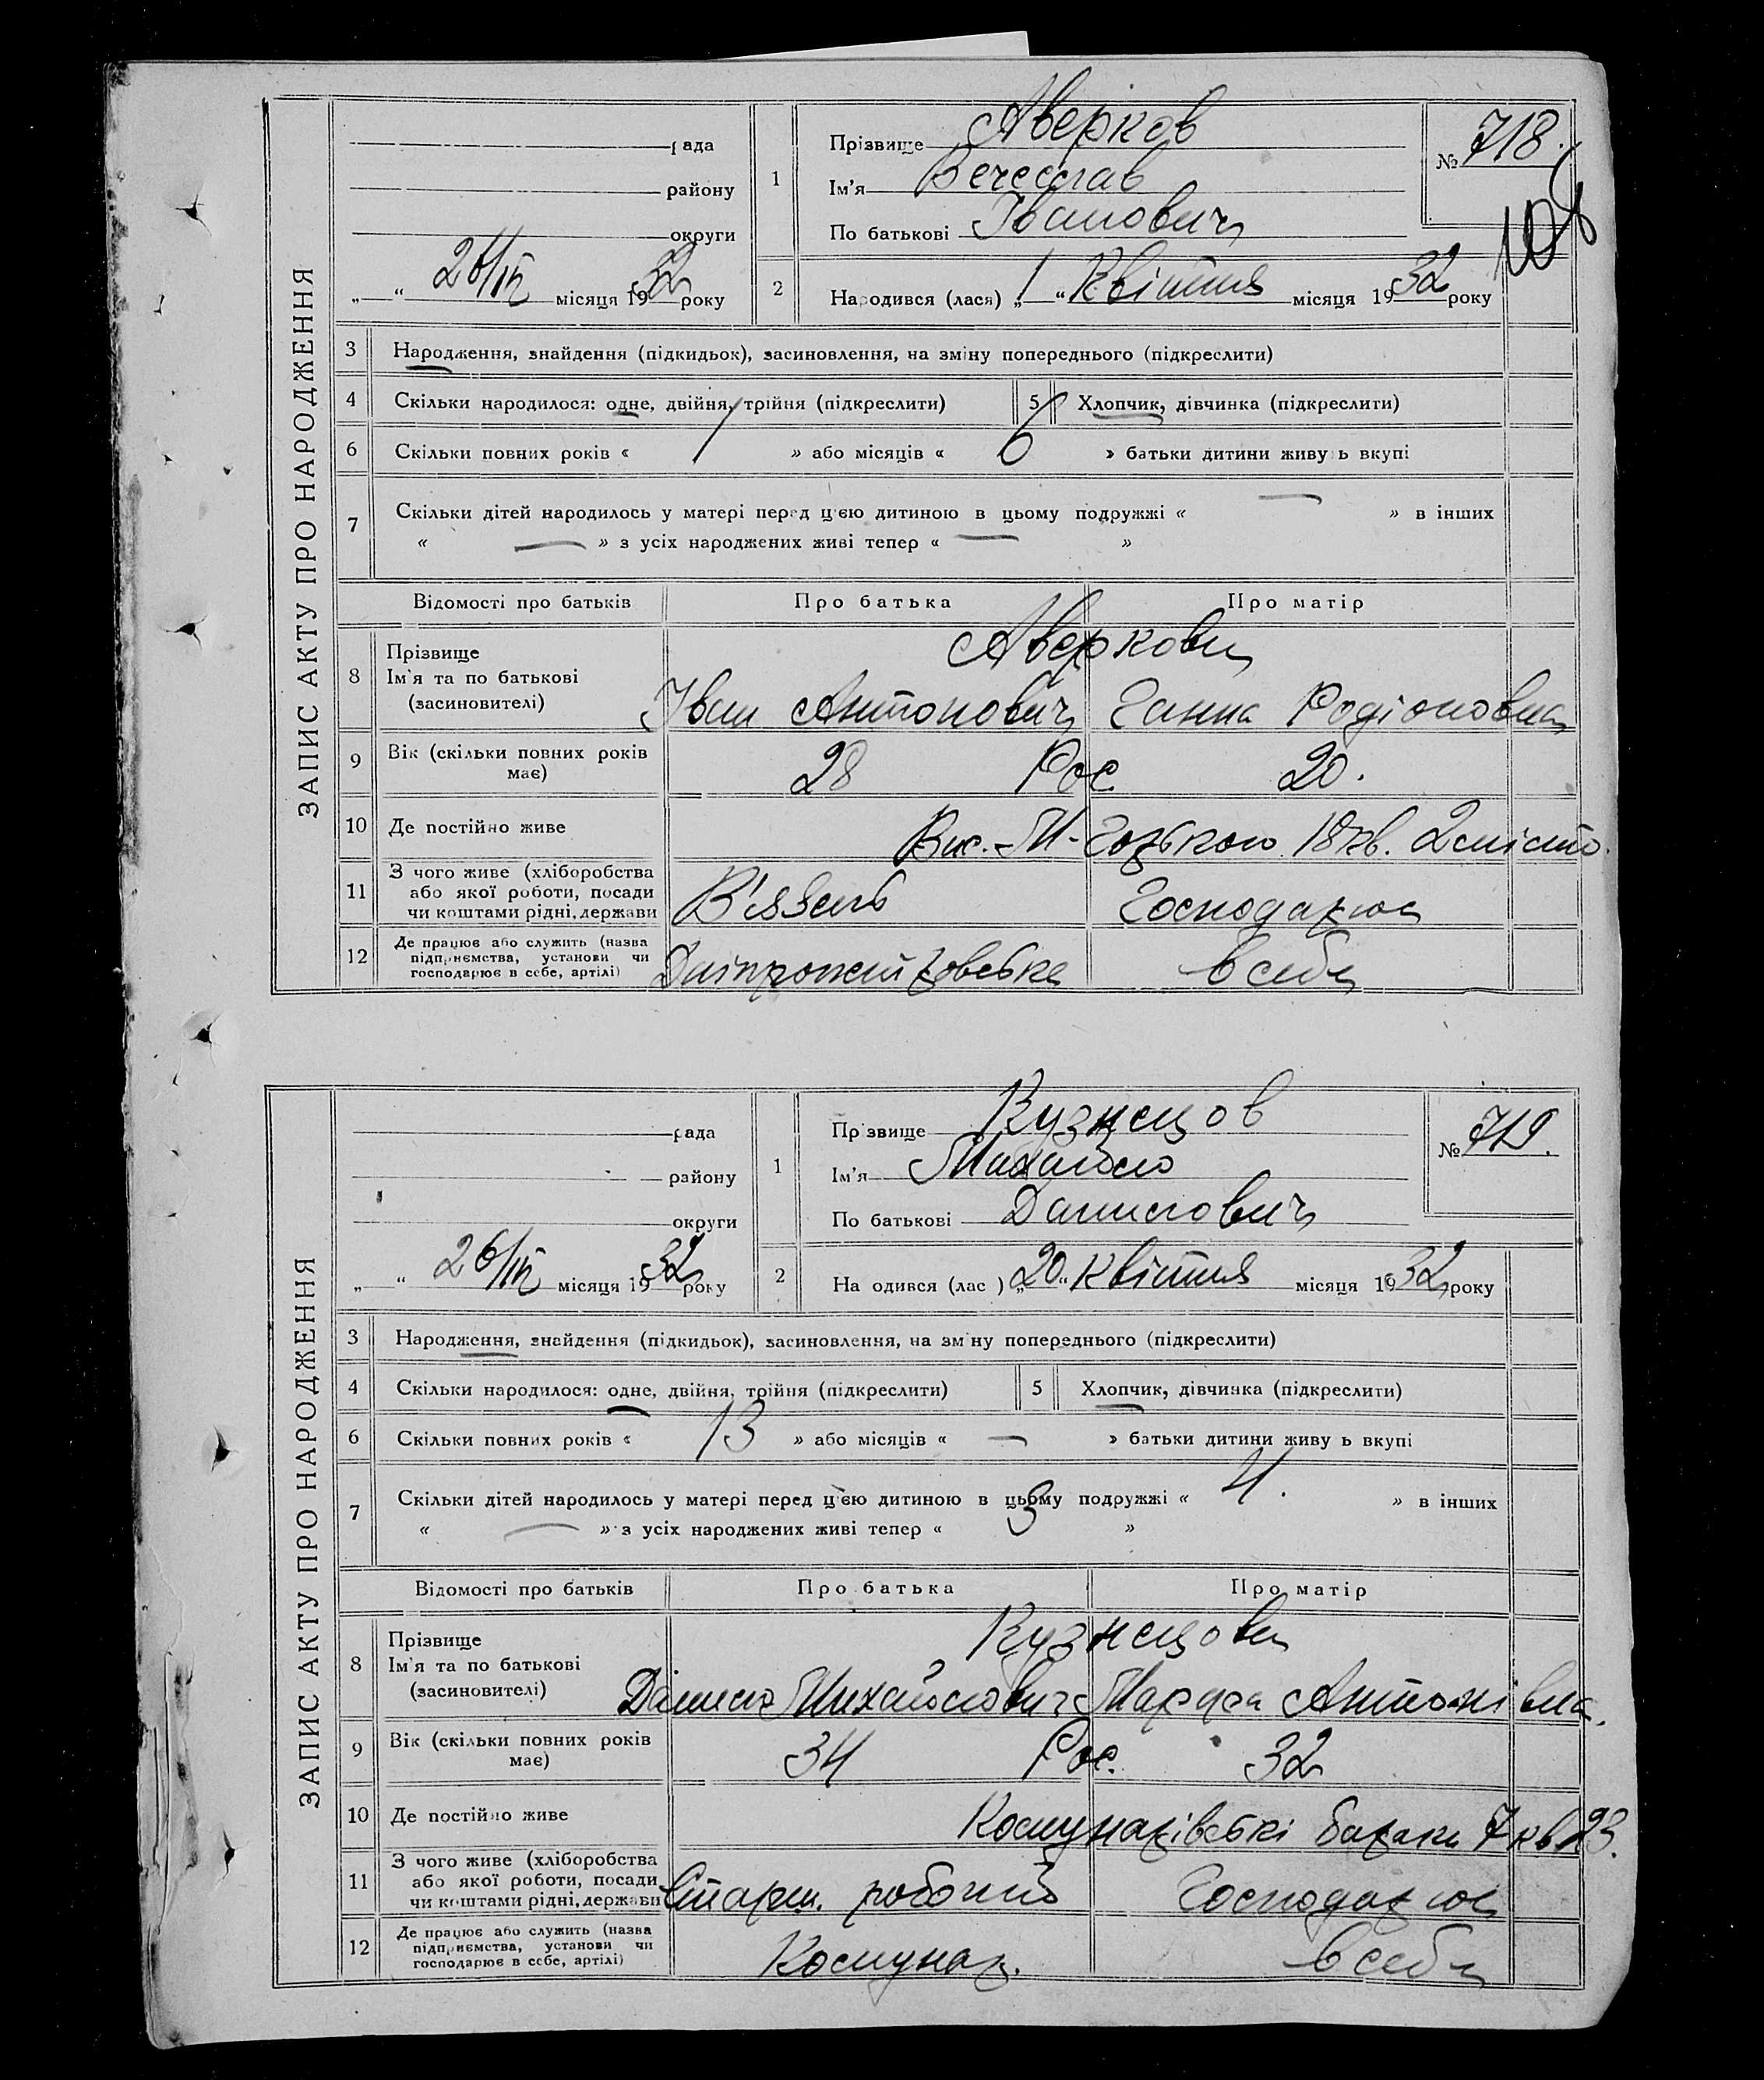 ЗАПИС АКТУ ПРО НАРОДЖЕННЯ
рада
району
округи
„ “ 26/IV місяця 1932 року
1
Прізвище Аверков
Ім'я Вечеслав
По батькові Іванович
№ 718.
2
Народився (лася) „1“ Квітня місяця 1932 року
3 Народження, знайдення (підкидьок), засиновлення, на зміну попереднього (підкреслити)
4 Скільки народилося: одне, двійня, трійня (підкреслити)
5 Хлопчик, дівчинка (підкреслити)
6 Скільки повних років « 1 » або місяців « 6 » батьки дитини живу ь вкупі
7 Скільки дітей народилось у матері перед цією дитиною в цьому подружжі « — » в інших
« — » з усіх народжених живі тепер « — »
Відомості про батьків Про батька Про матір
8 Прізвище
Ім'я та по батькові
(засиновителі)
Аверкови
Іван Антонович Ганна Родіоновна
9 Вік (скільки повних років
має)
28 Рос 20.
10 Де постійно живе
Вис. М-Горького 18 кв. 2 місто.
11 З чого живе (хліборобства
або якої роботи, посади
чи коштами рідні, держави
В'язень Господарює
12 Де працює або служить (назва
підприємства, установи чи
господарює в себе, артілі)
в себе
ЗАПИС АКТУ ПРО НАРОДЖЕННЯ
рада
району
округи
„ “ 26/IV місяця 1932 року
1
Пр звище Кузнецов
Ім'я Михайло
По батькові Данилович
№ 719.
2
На одився (лас ) „20“ Квітня місяця 1932 року
3 Народження, знайдення (підкидьок), засиновлення, на зм ну попереднього (підкреслити)
4 Скільки народилося: одне, двійня, трійня (підкреслити)
5 Хлопчик, дівчинка (підкреслити)
6 Скільки повних років « 13 » або місяців « — » батьки дитини живу ь вкупі
7 Скільки дітей народилось у матері перед цією дитиною в цьому подружжі « 4. » в інших
« — » з усіх народжених живі тепер « 3 »
Відомості про батьків Про батька Про матір
8 Прізвище
Ім'я та по батькові
(засиновителі)
Кузнецови
Данило Михайлович Марфа Антонівна.
9 Вік (скільки повних років
має)
34 Рос. 32
10 Де постійно живе
Комунарівські бараки 7 кв 23.
11 З чого живе (хліборобства
або якої роботи, посади
чи коштами рідні, держави
Старш. робочий Господарює
12 Де працює або служить (назва
підприємства, установи чи
господарює в себе, артілі)
Комунар. в себе